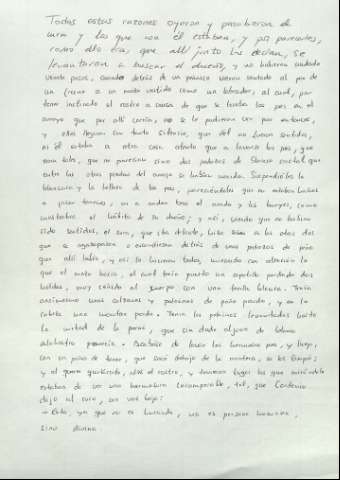 Todas estas razones oyeron y percibieron el
cura y los que con él estaban, y por parecerles,
como ello era, que allí junto las decían, se
levantaron a buscar el dueño, y no hubieron andado
veinte pasos, cuando detrás de un peñasco vieron sentado al pie de
un fresno a un mozo vestido como un labrador, al cual, por
tener inclinado el rostro a causa de que se lavaba los pies en el
arroyo que por allí corría, no se le pudieron ver por entonces,
y ellos llegaron con tanto silencio, que dél no fueron sentidos,
ni él estaba a otra cosa atento que a lavarse los pies, que
eran tales, que no parecían sino dos pedazos de blanco cristal que
entre las otras piedras del arroyo se habían nacido. Suspendióles la
blancura y la belleza de los pies, pareciéndoles que no estaban hechos
a pisar terrones, ni a andar tras el arado y los bueyes, como
mostraba el hábito de su dueño; y así, viendo que no habían
sido sentidos, el cura, que iba delante, hizo señas a los otros dos
que se agazapasen o escondiesen detrás de unos pedazos de peña
que allí había, y así lo hicieron todos, mirando con atención lo
que el mozo hacía, el cual traía puesto un capotillo pardo de dos
haldas, muy ceñido al cuerpo con una toalla blanca. Traía
ansimesmo unos calzones y polainas de paño pardo, y en la
cabeza una montera parda. Tenía las polainas levantadas hasta
la mitad de la pierna, que sin duda alguna de blanco
alabastro parecía. Acabóse de lavar los hermosos pies, y luego,
con un paño de tocar, que sacó debajo de la montera, se los limpió;
y al querer quitársele, alzó el rostro, y tuvieron lugar los que mirándole
estaban de ver una hermosura incomparable, tal, que Cardenio
dijo al cura, con voz baja:
- Ésta, ya que no es Luscinda, no es persona humana,
sino divina.